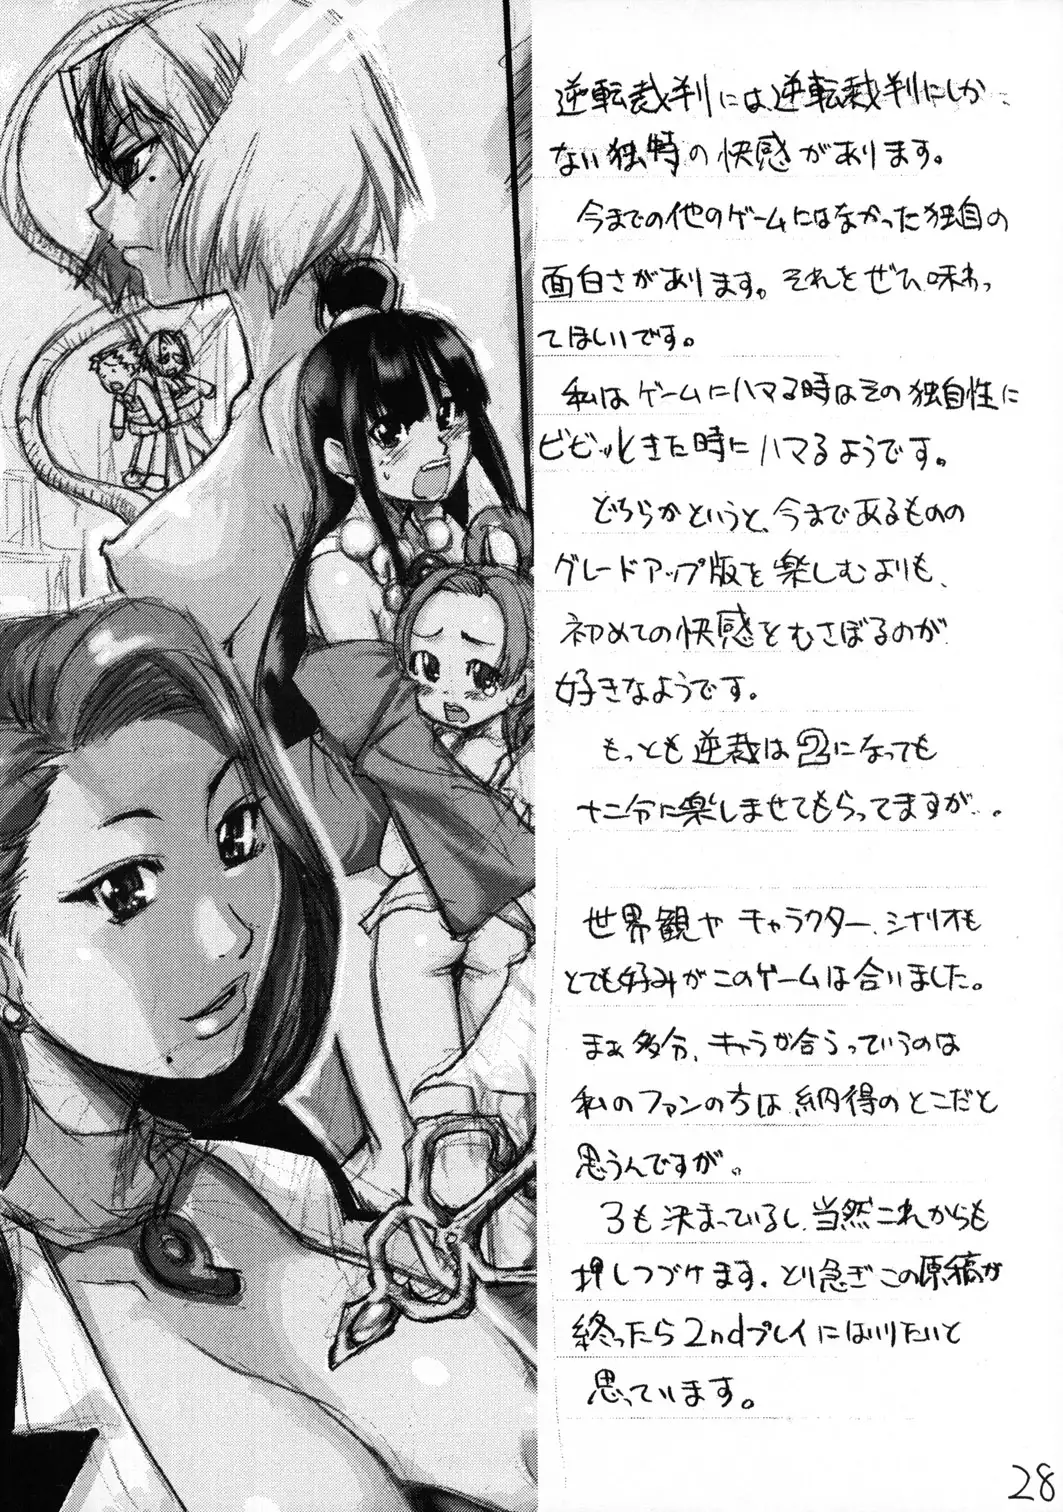 逆転裁判には逆転裁判にしか
ない独特の快感があります。
今までの他のゲームにはなかった独自の
面白さがあります。それをぜひ、味わっ
てほしいです。
私はゲームにハマる時はその独自性に
ビビッときた時にハマるようです。
どちらかというと、今まであるものの
グレードアップ版を楽しむよりも、
初めての快感をむさぼるのが
好きなようです。
もっとも逆裁は2になっても
十二分に楽しませてもらってますが…。
世界観やキャラクター、シナリオも
とても好みがこのゲームは合いました。
まぁ多分、キャラが合うっていうのは
私のファンの方は納得のとこだと
思うんですが。
3も決まっているし、当然これからも
押しつづけます。とり急ぎこの原稿が
終ったら2ndプレイにはいりたいと
思っています。
28